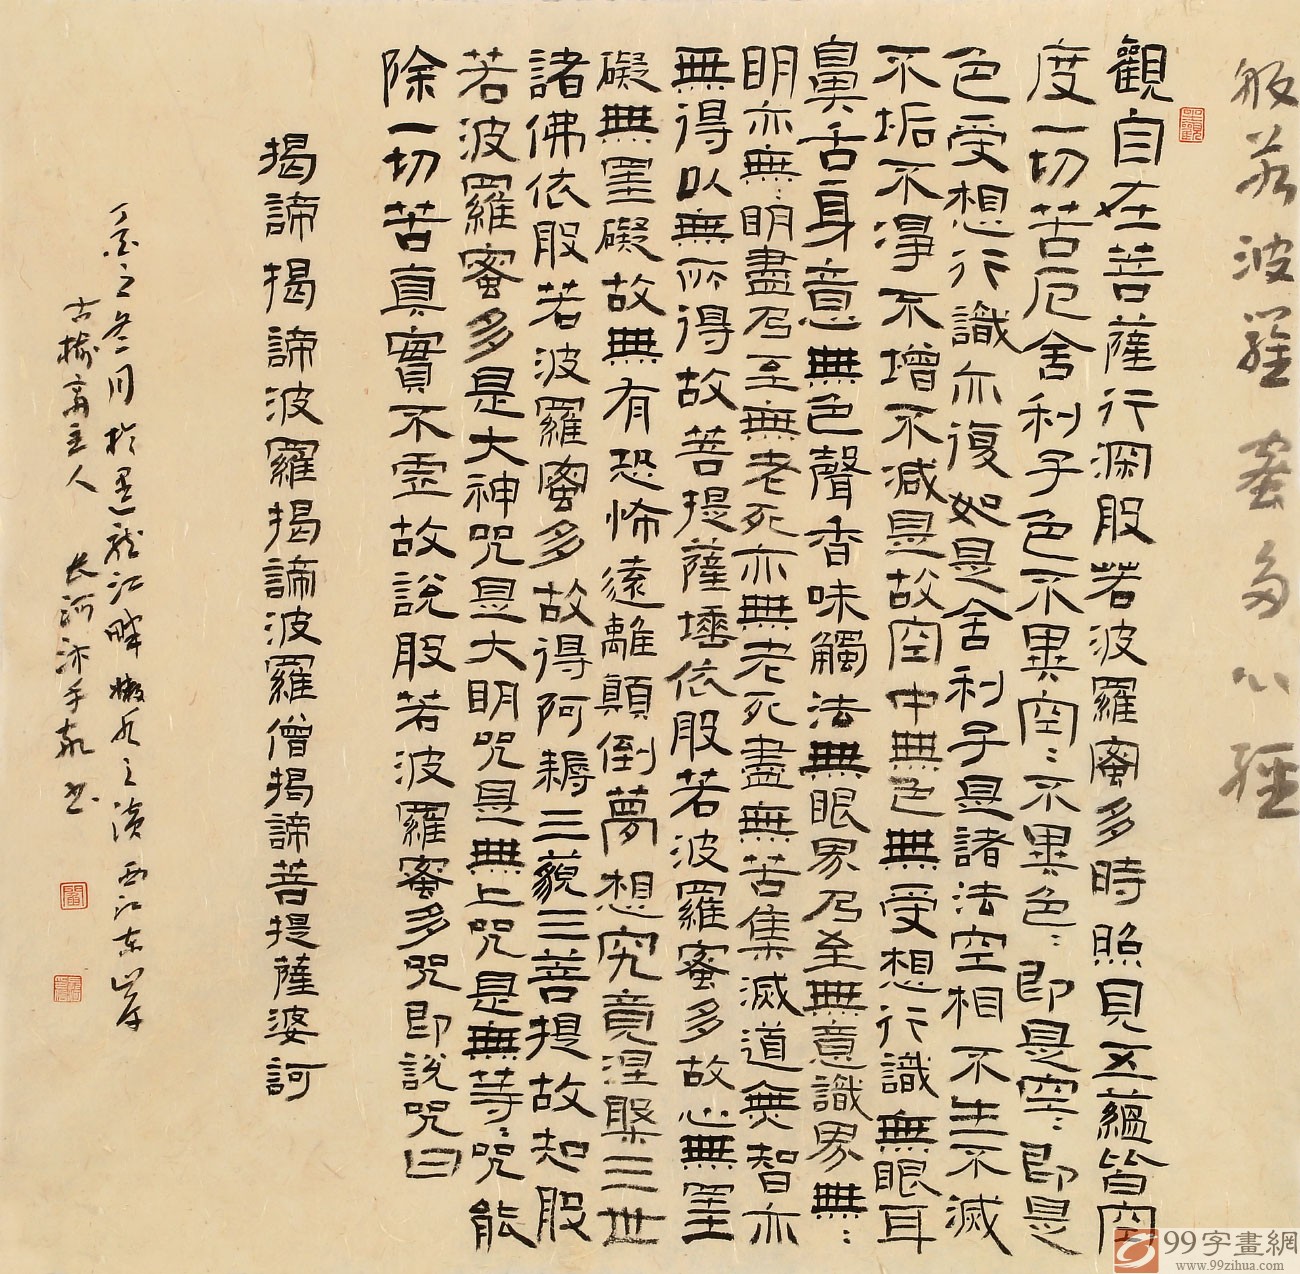 般若波羅蜜多心經
觀自在菩薩行深般若波羅蜜多時照見五蘊皆空
度一切苦厄舍利子色不異空〻不異色〻即是空〻即是
色受想行識亦復如是舍利子是諸法空相不生不滅
不垢不淨不增不減是故空中無色無受想行識無眼耳
鼻舌身意無色聲香味觸法無眼界乃至無意識界無〻
明亦無〻明盡乃至無老死亦無老死盡無苦集滅道無智亦
無得以無所得故菩提薩埵依般若波羅蜜多故心無罣
礙無罣礙故無有恐怖遠離顛倒夢想究竟涅槃三世
諸佛依般若波羅蜜多故得阿耨三藐三菩提故知般
若波羅蜜多是大神咒是大明咒是無上咒是無等〻咒能
除一切苦真實不虛故說般若波羅蜜多咒即說咒曰
揭諦揭諦波羅揭諦波羅僧揭諦菩提薩婆訶
丁酉之冬月於黑龍江畔嫩水之濱西江東岸
古榆齋主人 长河沐手敬书
99字畫網
www.99zihua.com